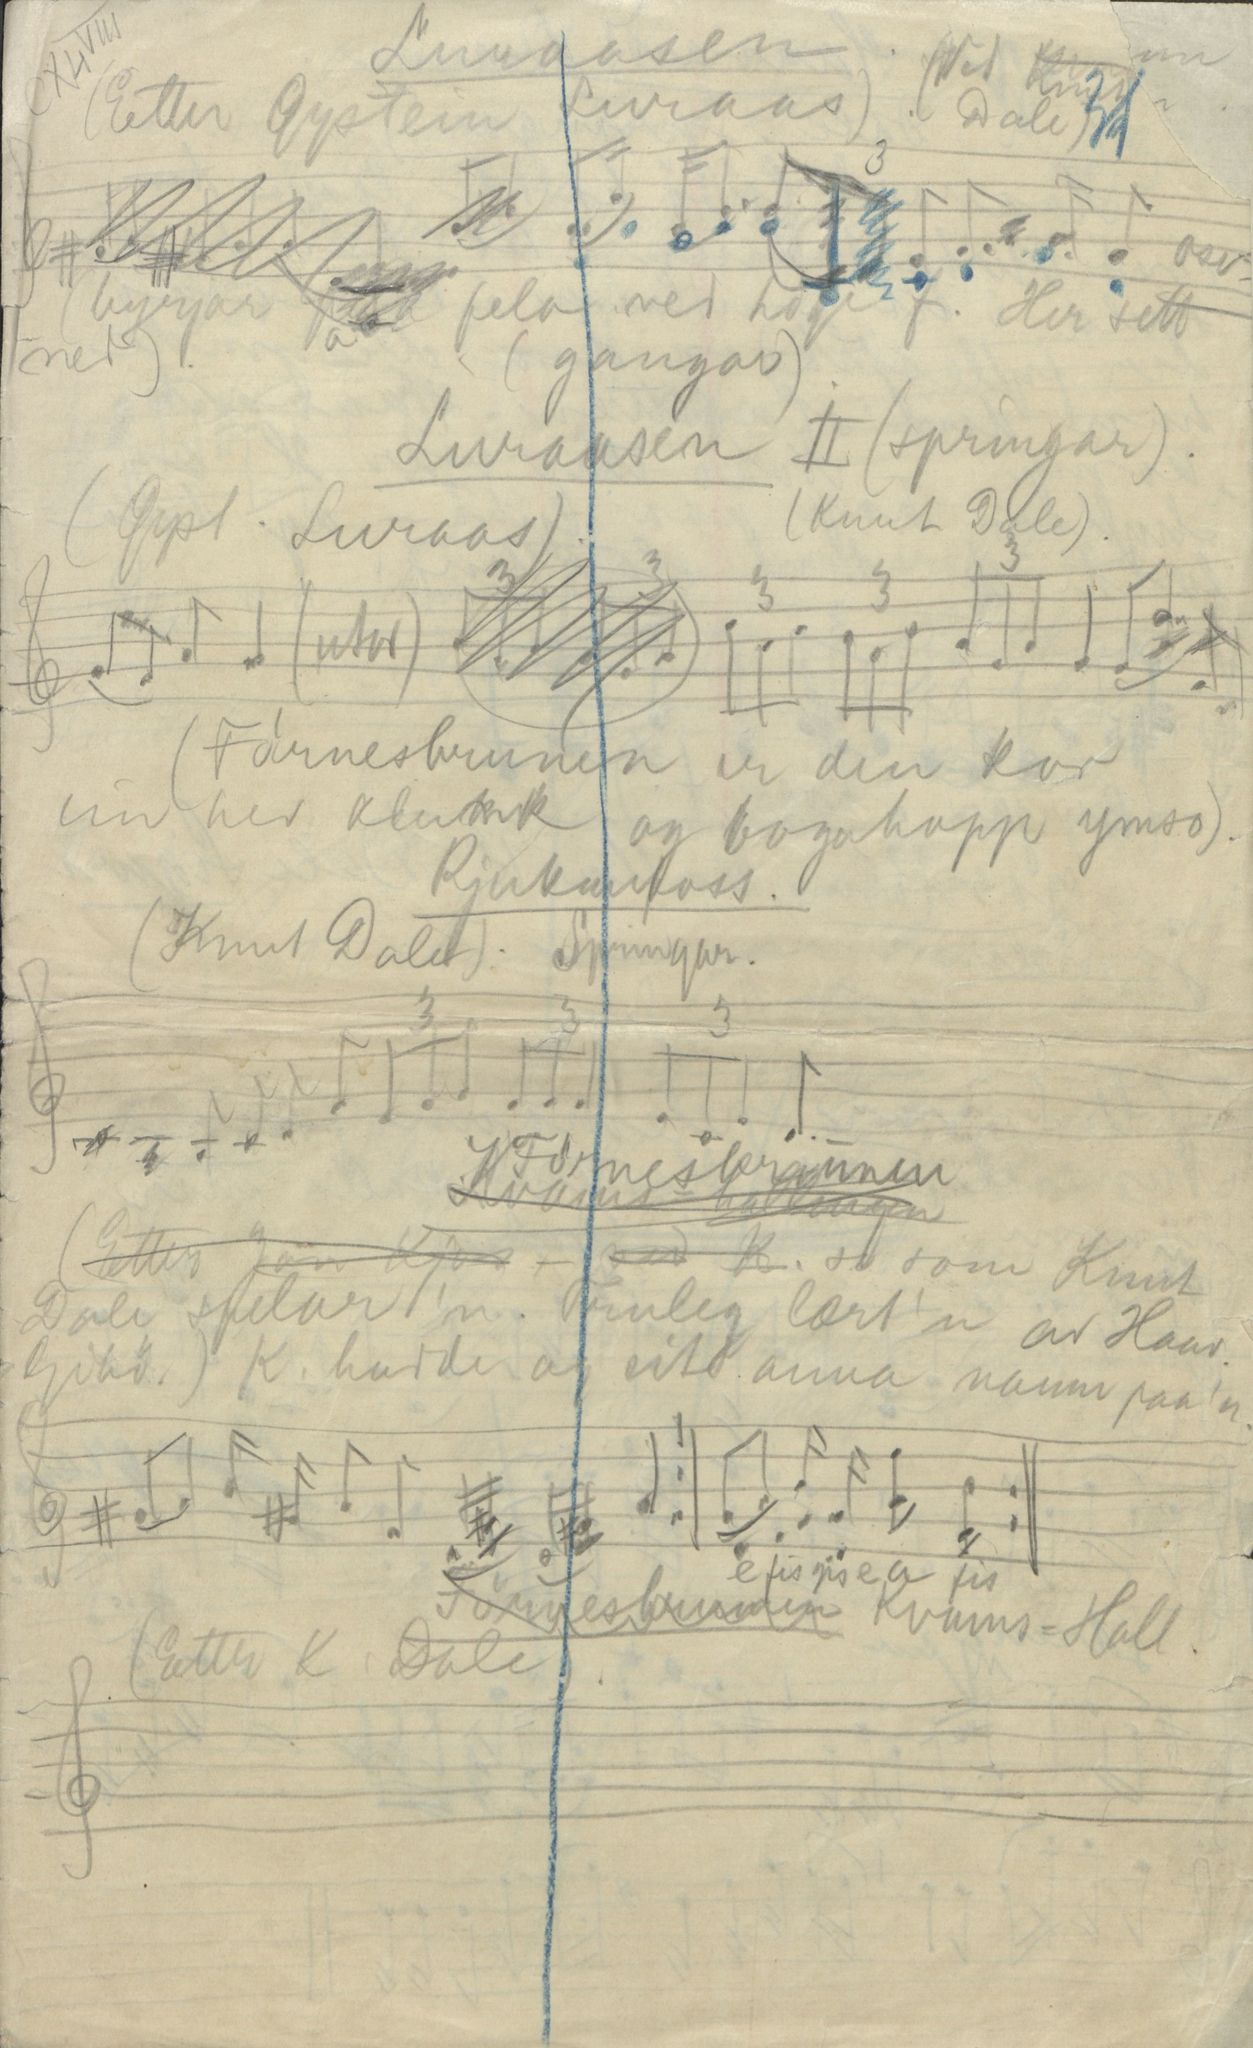 CXLVIII
Luraasen
(Etter Øystein Luraas). (Ved
Dale)
3
osv.
(byrjar paa fela ved høge f. Her sett
ned). a
(gangar)
Luraasen II (springar).
(Øyst. Luraas). (Knut Dale).
3 3 3 3 3
(utor)
(Førnesbrunen er den kor
ein her klunk og bogahopp ymso).
Rjukanfoss.
(Knut Dale). Springar.
3 3 3
Førnesbrunen
Kvams-hallingen
(Etter Jon Kjos - ved K. so som Knut
Dale spelar'n. Truleg lært'n av Haav.
Gibø.) K. hadde og eit anna namn paa'n.
e fis gis e a fis
Førnesbrunen Kvams=Hall.
(Etter K. Dale).